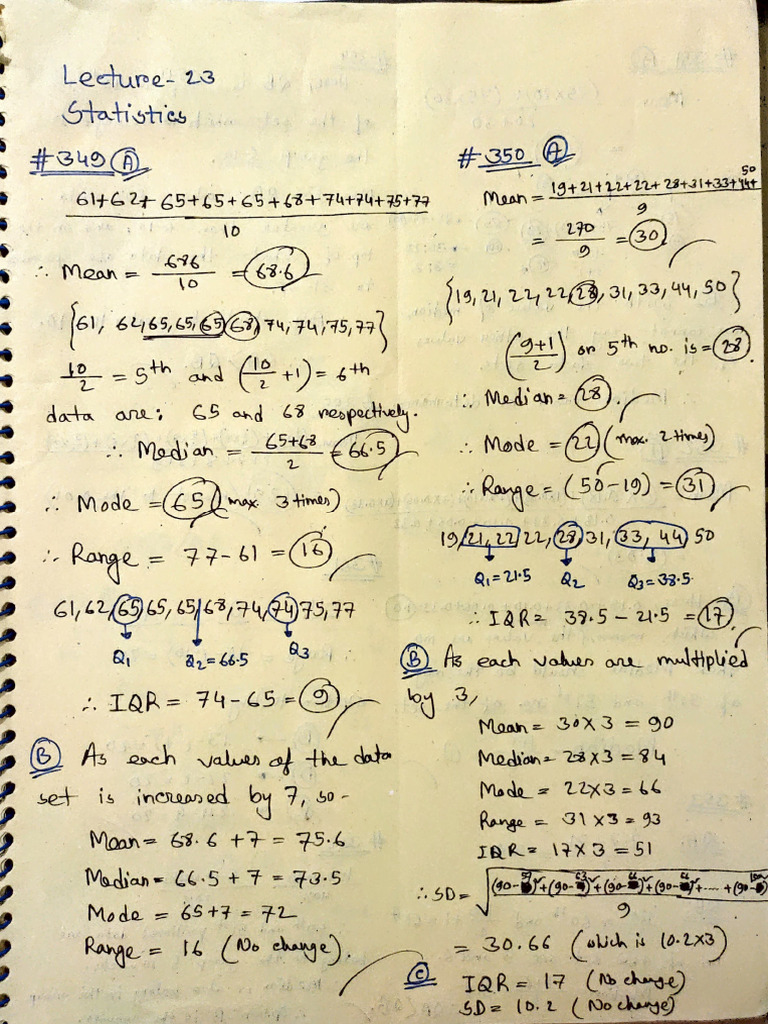 Lecture-23
Statistics
#349 (A)
61+62+65+65+65+68+74+74+75+77
10
∴ Mean = 686/10 = 68.6
{61, 62, 65, 65, 65, 68, 74, 74, 75, 77}
10/2 = 5th and (10/2 + 1) = 6th
data are: 65 and 68 respectively.
∴ Median = 65+68/2 = 66.5
∴ Mode = 65 (max 3 times)
∴ Range = 77-61 = 16
61, 62, 65, 65, 65, 68, 74, 74, 75, 77
Q1 Q2=66.5 Q3
∴ IQR = 74-65 = 9
(B) As each values of the data
set is increased by 7, so-
Mean = 68.6 + 7 = 75.6
Median = 66.5 + 7 = 73.5
Mode = 65+7 = 72
Range = 16 (No change).
#350 (A)
Mean = 19+21+22+22+28+31+33+44+50
9
= 270/9 = 30
{19, 21, 22, 22, 28, 31, 33, 44, 50}
(9+1/2) or 5th no. is = 28
∴ Median = 28
∴ Mode = 22 (max. 2 times)
∴ Range = (50-19) = 31
19, 21, 22, 22, 28, 31, 33, 44, 50
Q1=21.5 Q2 Q3=38.5
∴ IQR = 38.5 - 21.5 = 17
(B) As each values are multiplied
by 3,
Mean = 30×3 = 90
Median = 28×3 = 84
Mode = 22×3 = 66
Range = 31×3 = 93
IQR = 17×3 = 51
∴ SD = √((90-57)²+(90-63)²+(90-66)²+(90-66)²+....+(90-150)²
9
= 30.66 (which is 10.2×3)
(C) IQR = 17 (No change)
SD = 10.2 (No change)